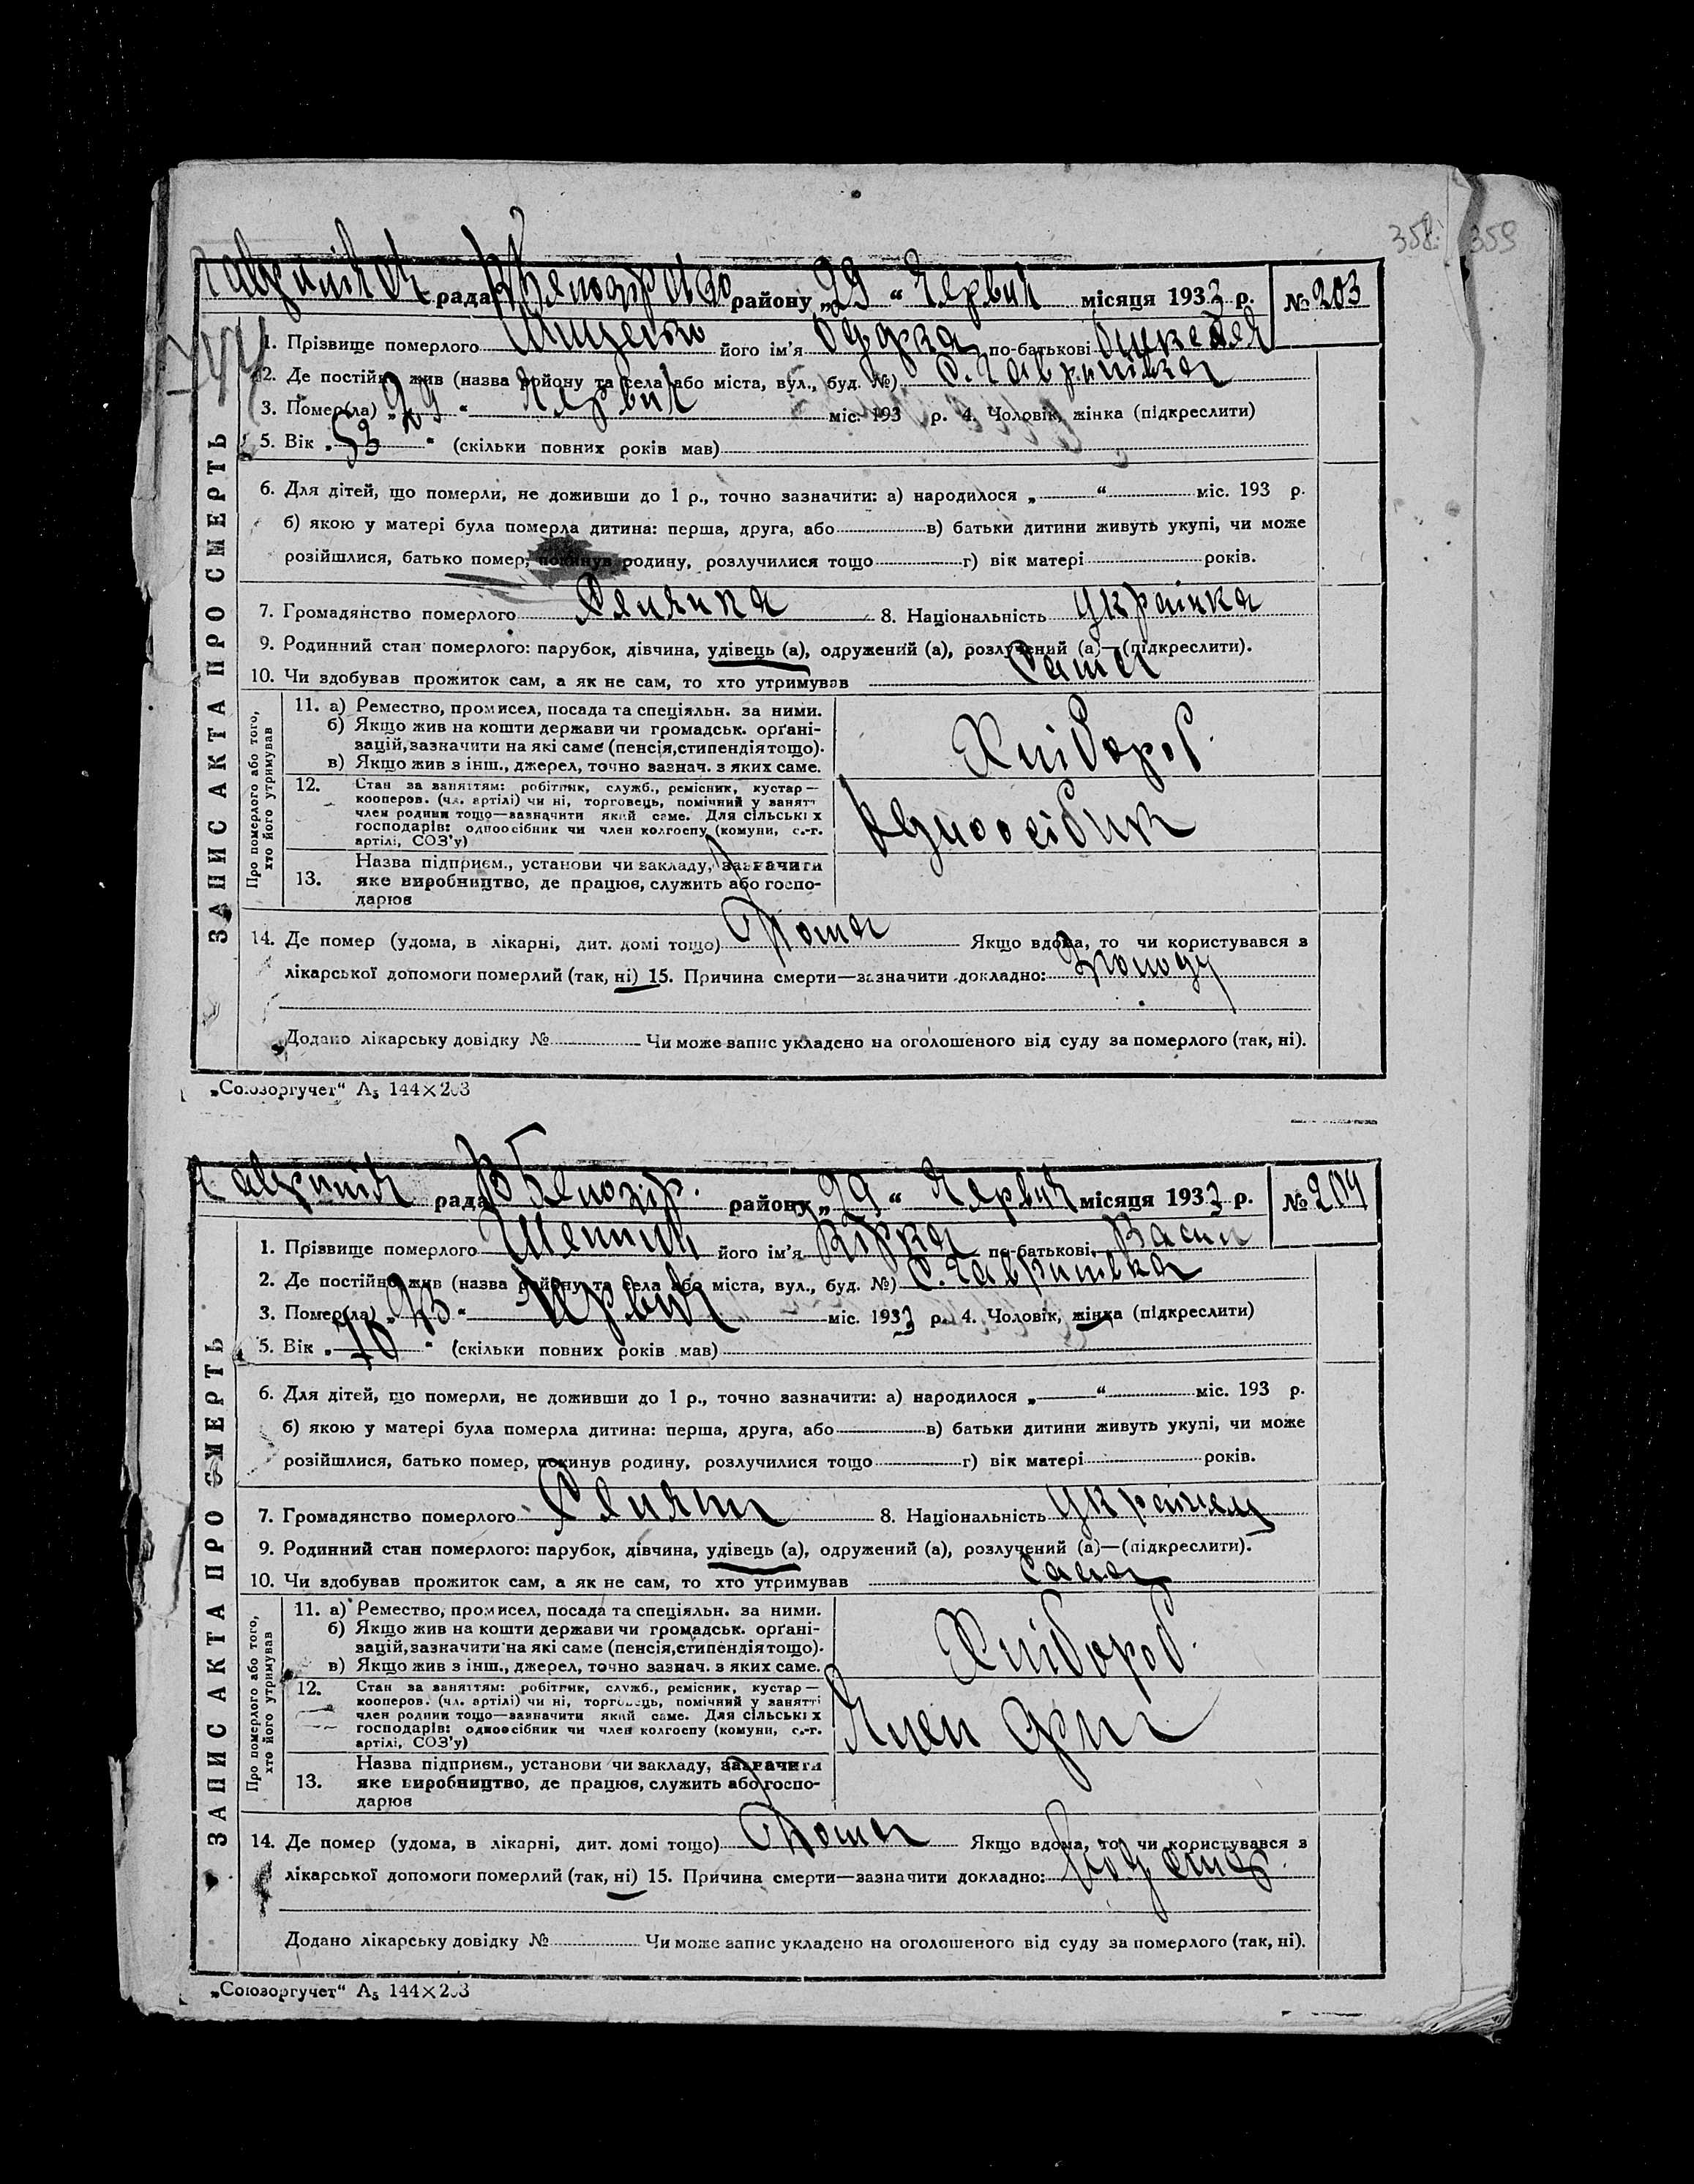 358. 359
рада району „29“ Червня місяця 1933 р. № 203
ЗАПИС АКТА ПРО СМЕРТЬ
1. Прізвище померлого його ім'я по-батькові
2. Де постійно жив (назва району та села або міста, вул., буд. №) с. Гавришівка
3. Помер(ла) „29“ Червня міс. 193 р. 4. Чоловік, жінка (підкреслити)
5. Вік „53“ (скільки повних років мав)
6. Для дітей, що померли, не доживши до 1 р., точно зазначити: а) народилося „ “ міс. 193 р.
б) якою у матері була померла дитина: перша, друга, або в) батьки дитини живуть укупі, чи може
розійшлися, батько помер, покинув родину, розлучилися тощо г) вік матері років.
7. Громадянство померлого Селянка 8. Національність Українка
9. Родинний стан померлого: парубок, дівчина, удівець (а), одружений (а), розлучений (а)—(підкреслити).
10. Чи здобував прожиток сам, а як не сам, то хто утримував Сама
Про померлого або того, хто його утримував
11. а) Ремество, промисел, посада та спеціяльн. за ними.
б) Якщо жив на кошти держави чи громадськ. орґані-
зацій, зазначити на які саме (пенсія, стипендія тощо).
в) Якщо жив з інш., джерел, точно зазнач. з яких саме.
Хлібороб.
12. Стан за заняттям: робітник, служб., ремісник, кустар—
кооперов. (чл. артілі) чи ні, торговець, помічний у занятті
член родини тощо—зазначити який саме. Для сільських
господарів: одноосібник чи член колгоспу (комуни, с.-г.
артілі, СОЗ'у)
Одноосібник
Назва підприєм., установи чи закладу, зазначити
13. яке виробництво, де працює, служить або госпо-
дарює
14. Де помер (удома, в лікарні, дит. домі тощо) Дома Якщо вдома, то чи користувався з
лікарської допомоги померлий (так, ні) 15. Причина смерти—зазначити докладно: З голоду
Додано лікарську довідку № Чи може запис укладено на оголошеного від суду за померлого (так, ні).
„Союзоргучет“ А₅ 144×203
рада району „29“ Червня місяця 1933 р. № 204
ЗАПИС АКТА ПРО СМЕРТЬ
1. Прізвище померлого його ім'я по-батькові Васил
2. Де постійно жив (назва району та села або міста, вул., буд. №) с. Гавришівка
3. Помер(ла) Червня міс. 1933 р. 4. Чоловік, жінка (підкреслити)
5. Вік „70“ (скільки повних років мав)
6. Для дітей, що померли, не доживши до 1 р., точно зазначити: а) народилося „ “ міс. 193 р.
б) якою у матері була померла дитина: перша, друга, або в) батьки дитини живуть укупі, чи може
розійшлися, батько помер, покинув родину, розлучилися тощо г) вік матері років.
7. Громадянство померлого 8. Національність
9. Родинний стан померлого: парубок, дівчина, удівець (а), одружений (а), розлучений (а)—(підкреслити).
10. Чи здобував прожиток сам, а як не сам, то хто утримував Сама
Про померлого або того, хто його утримував
11. а) Ремество, промисел, посада та спеціяльн. за ними.
б) Якщо жив на кошти держави чи громадськ. орґані-
зацій, зазначити на які саме (пенсія, стипендія тощо).
в) Якщо жив з інш., джерел, точно зазнач. з яких саме.
Хлібороб.
12. Стан за заняттям: робітник, служб., ремісник, кустар—
кооперов. (чл. артілі) чи ні, торговець, помічний у занятті
член родини тощо—зазначити який саме. Для сільських
господарів: одноосібник чи член колгоспу (комуни, с.-г.
артілі, СОЗ'у)
Член
Назва підприєм., установи чи закладу, зазначити
13. яке виробництво, де працює, служить або госпо-
дарює
14. Де помер (удома, в лікарні, дит. домі тощо) Дома Якщо вдома, то чи користувався з
лікарської допомоги померлий (так, ні) 15. Причина смерти—зазначити докладно:
Додано лікарську довідку № Чи може запис укладено на оголошеного від суду за померлого (так, ні).
„Союзоргучет“ А₅ 144×203